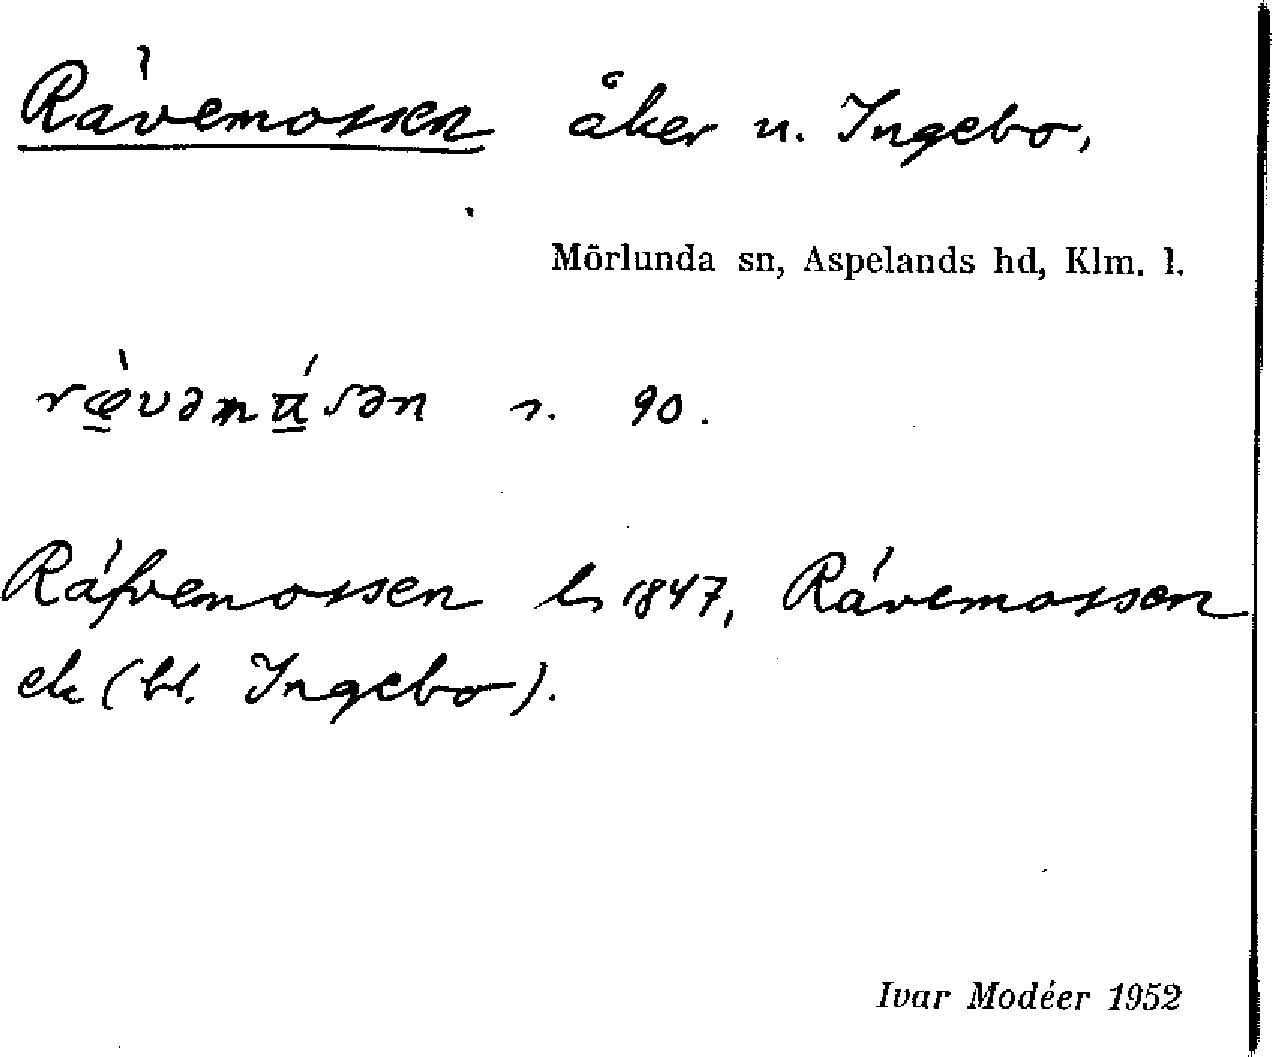 Rävemossen åker u. Ingebo,
Mörlunda sn, Aspelands hd, Klm. l.
s. 90.
Räfvemossen ls 1847, Rävemossen
ek (bl. Ingebo).
Ivar Modéer 1952